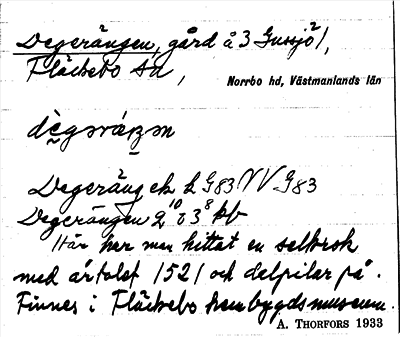 Degerängen, gård å 3 Gussjö 2/1,
Fläckebo sn,
Norrbo hd, Västmanlands län
Degeräng ek k G83 NV G83
Degerängen 2 10 o 3 8 kb
Här har man hittat en selkrok
med årtalet 1521 och delpilar på.
Finnes i Fläckebo hembygdsmuseum.
A. THORFORS 1933